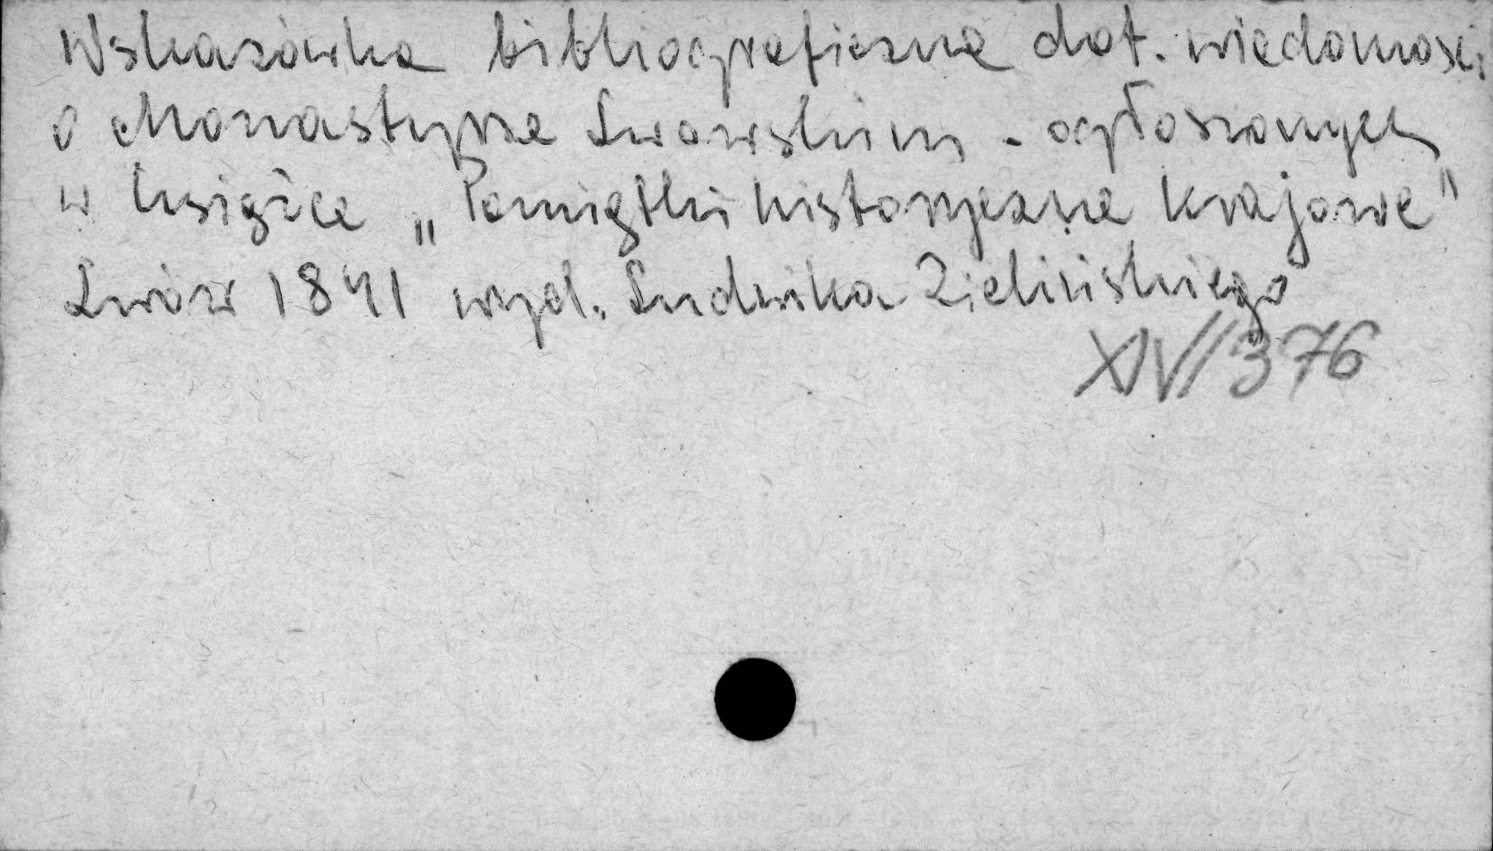 Wskazówka bibliograficzna dot. wiedomości
o Monastyrze Lwowskim - ogłoszonych
w książce „Pamiątki historyczne krajowe"
Lwów 1841 wyd. Ludwika Zielińskiego
XIV/376